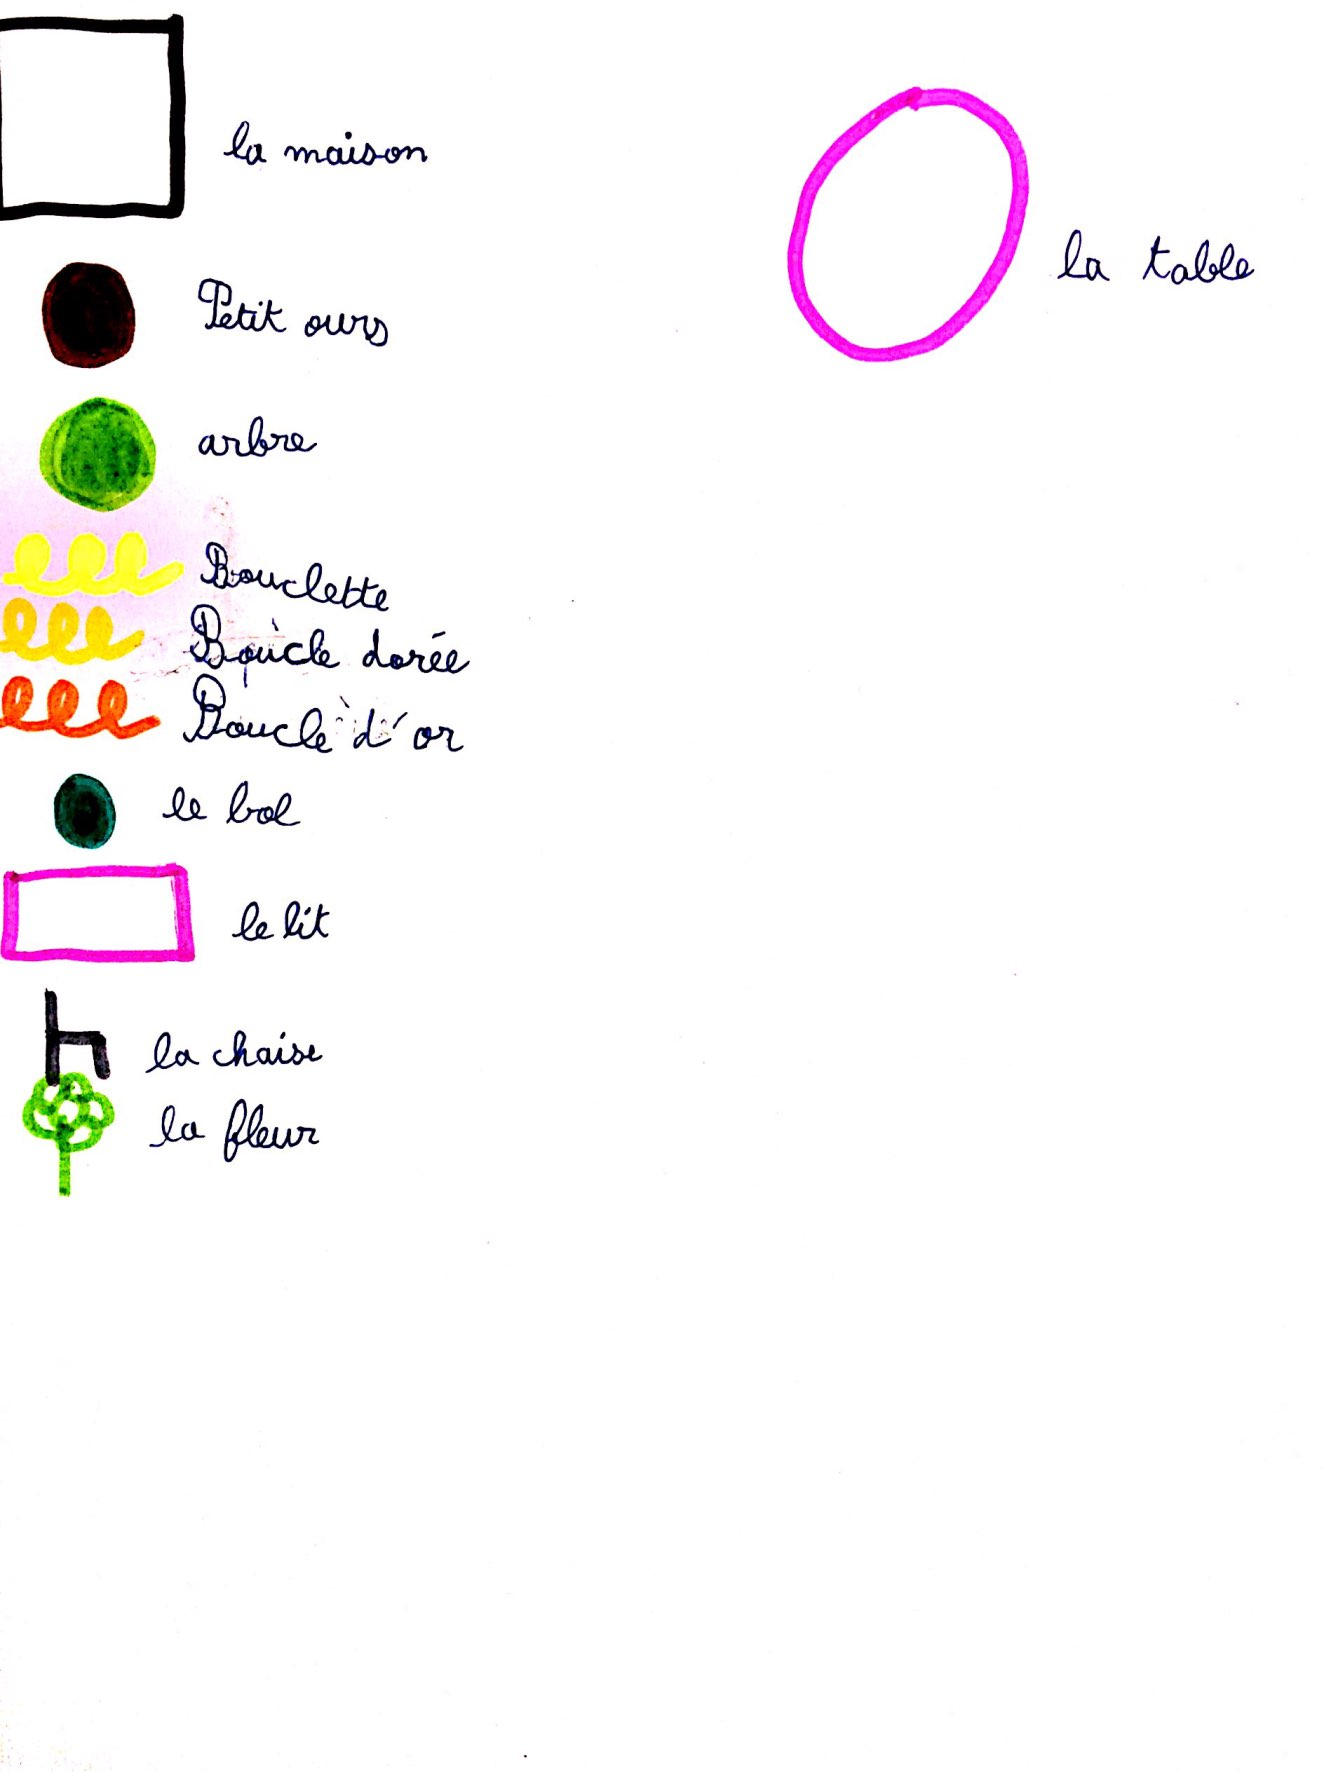 la maison
la table
Petit ours
arbre
Bouclette
Boucle dorée
Boucle d'or
le bol
le lit
la chaise
la fleur